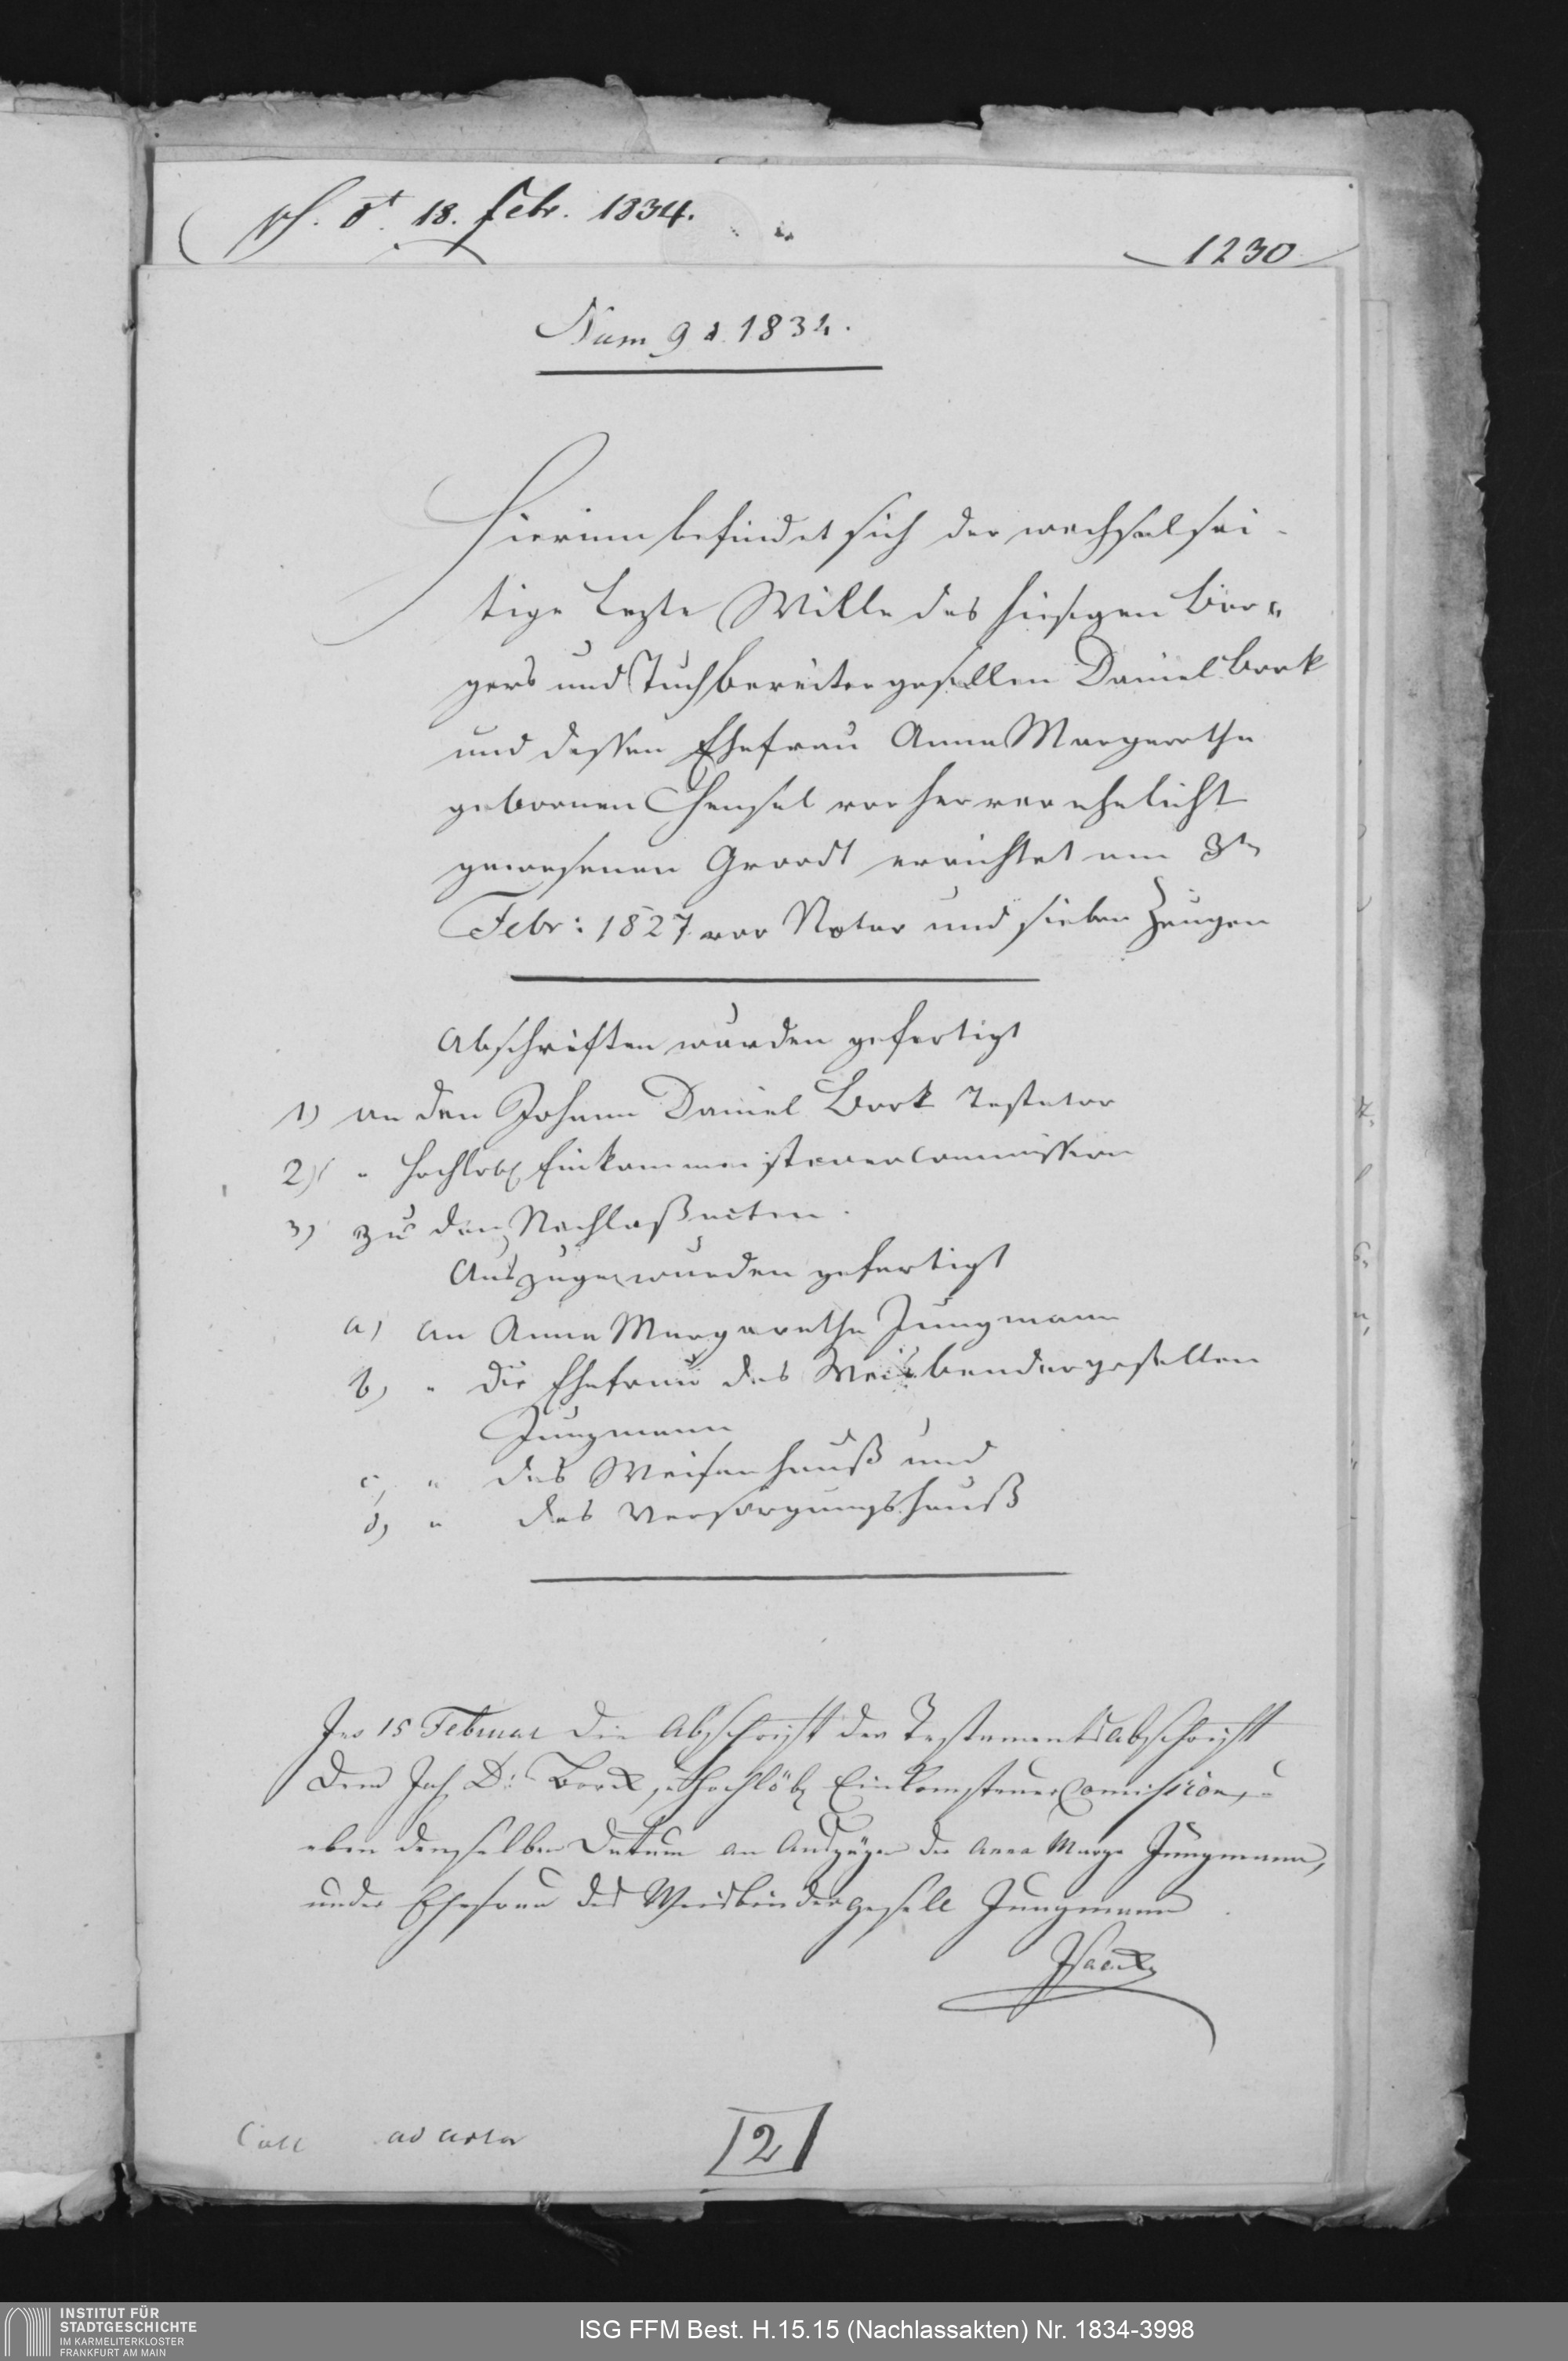 18. Febr. 1834.
1230
Num 9 d. 1834.
Hierinn befindet sich der wechselsei-
tige lezte Wille des hiesigen Bür-
gers und Tuchbereitergesellen Daniel Bork
und dessen Ehefrau Anna Margarethe
gebornen Hensel vorher verehelicht
gewesenen Groodt errichtet am 3ten
Febr: 1827 vor Notar und sieben Zeugen
Abschriften wurden gefertigt
1) an den Johann Daniel Bork Testator
2) " Hochlobl Einkommensteuercommission
3) zu den Nachlaßacten.
Auszüge wurden gefertigt
a) an Anna Margarethe Jungmann
b) " die Ehefrau des Weisbendergesellen
Jungmann
c) " das Weisenhauß und
d) " das Versorgungshauß
15 Februar die Abschrift der Testamentsabschrift
dem Joh D: Bork, Hochlöbl Einkomsteuer Comission,
eben demselben Datum an Auszüge der Anna Marge Jungmann,
under Ehefrau des Weisbindergesell Jungmann
ad acta
2
INSTITUT FÜR
STADTGESCHICHTE
IM KARMELITERKLOSTER
FRANKFURT AM MAIN
ISG FFM Best. H.15.15 (Nachlassakten) Nr. 1834-3998